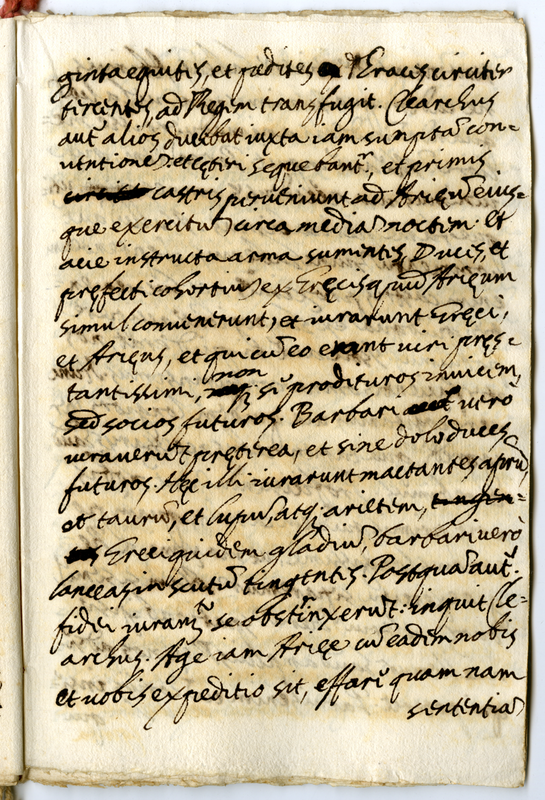 ginta equites, et pedites ad Traces circiter
tercentos, ad Regem transfugit. Clearchus
aut̃ alios ducebat iuxta iam sumpta con=
et cęteri sequebant̃, et primis
castris perveniunt ad Arięũ eius=
que exercitũ circa mediã noctem. et
acie instructa arma sumentes, Duces, et
pręfecti cohortiũ ex Gręcis apud Arięum
simul convenerunt, et iurarunt Gręci,
et Arięus, et qui cũ eo erant viri pręs=
tantissimi, non prodituros invicem,
sed socios futuros. Barbari verò
iuraverũt pręterea, et sine dolo duces
futuros. Hęc illi iurarunt mactantes aprũ,
et taurũ, et lupũ, atq; arietem,
Gręci quidem gladiũ, barbari verò
lanceas in scutũ tingentes. Postquã aut̃
fidei iuramt̃o se obstrinxerũt: inquit Cle=
archus. Age iam Arięe cũ eadem nobis
et vobis expeditio sit, effare quam nam
sententiã